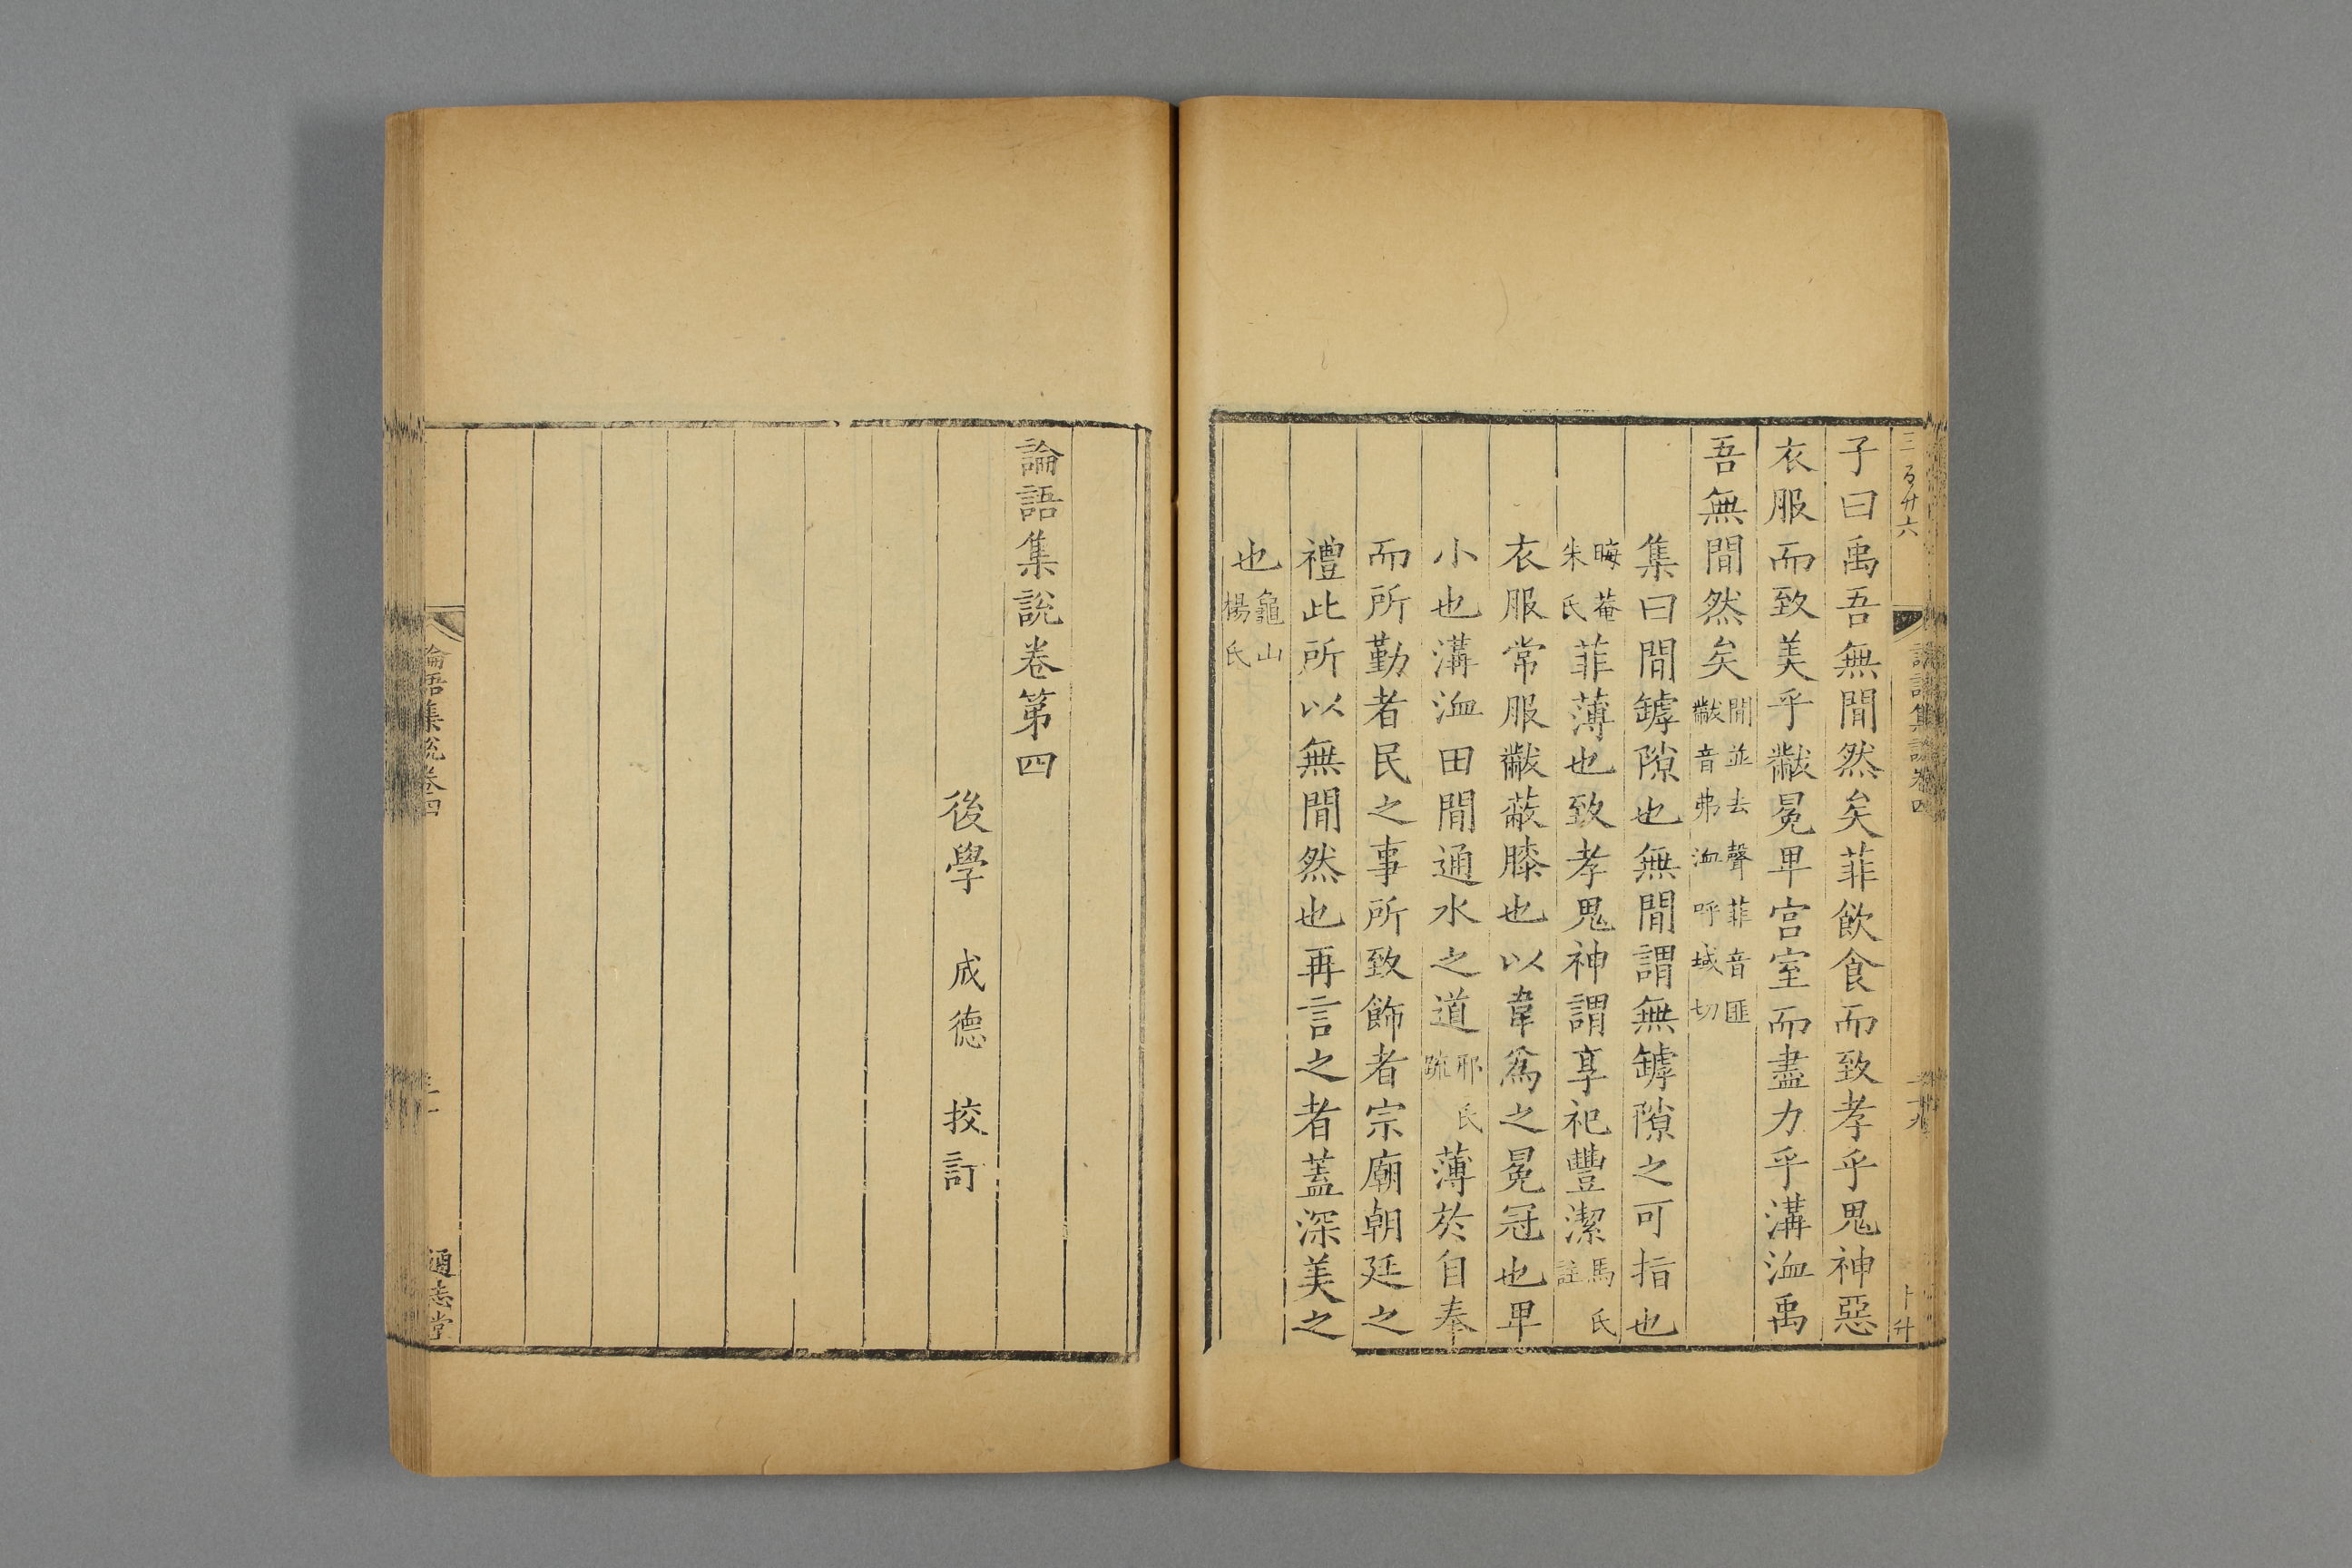 三百廿六
子曰禹吾無間然矣菲飲食而致孝乎鬼神惡
衣服而致美乎黻冕卑宮室而盡力乎溝洫禹
吾無間然矣間並去聲菲音匪黻音弗洫呼域切
集曰間罅隙也無間謂無罅隙之可指也
晦菴朱氏菲薄也致孝鬼神謂享祀豐潔馬氏註
衣服常服黻蔽膝也以韋爲之冕冠也卑
小也溝洫田間通水之道邢氏疏薄於自奉
而所勤者民之事所致飾者宗廟朝廷之
禮此所以無間然也再言之者蓋深美之
也龜山楊氏
論語集說卷第四
後學 成德 挍訂
論語集說卷四
通志堂